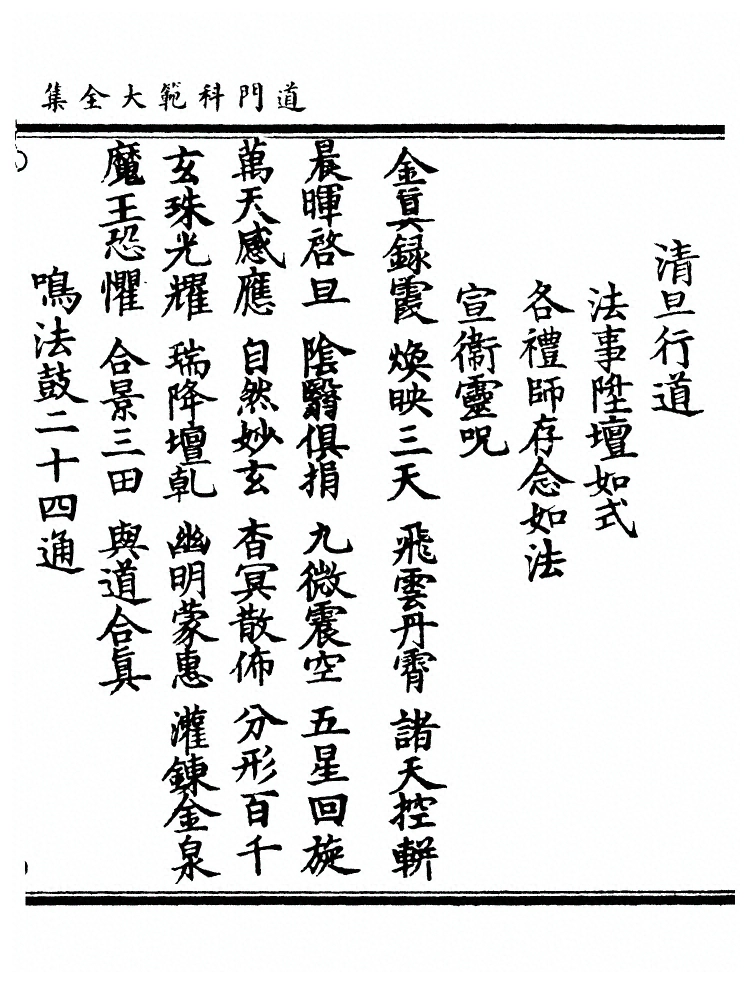 道門科範大全集
清旦行道
法事陞壇如式
各禮師存念如法
宣衞靈呪
金真録霞 煥映三天 飛雲丹霄 諸天控軿
晨暉啓旦 陰翳俱捐 九微震空 五星回旋
萬天感應 自然妙玄 杳冥散佈 分形百千
玄珠光耀 瑞降壇乹 幽明蒙惠 灌鍊金泉
魔王恐懼 合景三田 與道合真
鳴法鼓二十四通